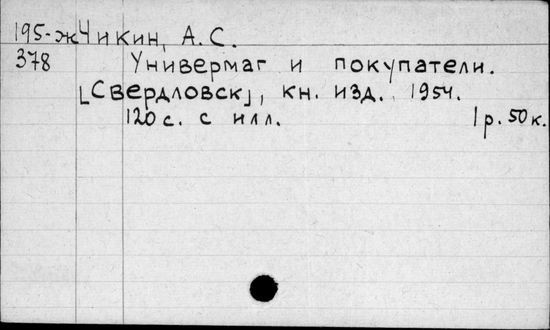 195-ж Чикин, А. С.
378 Универмаг и покупатели.
[Свердловск], кн. изд. 1954.
120 с. с илл. 1 р. 50 к.